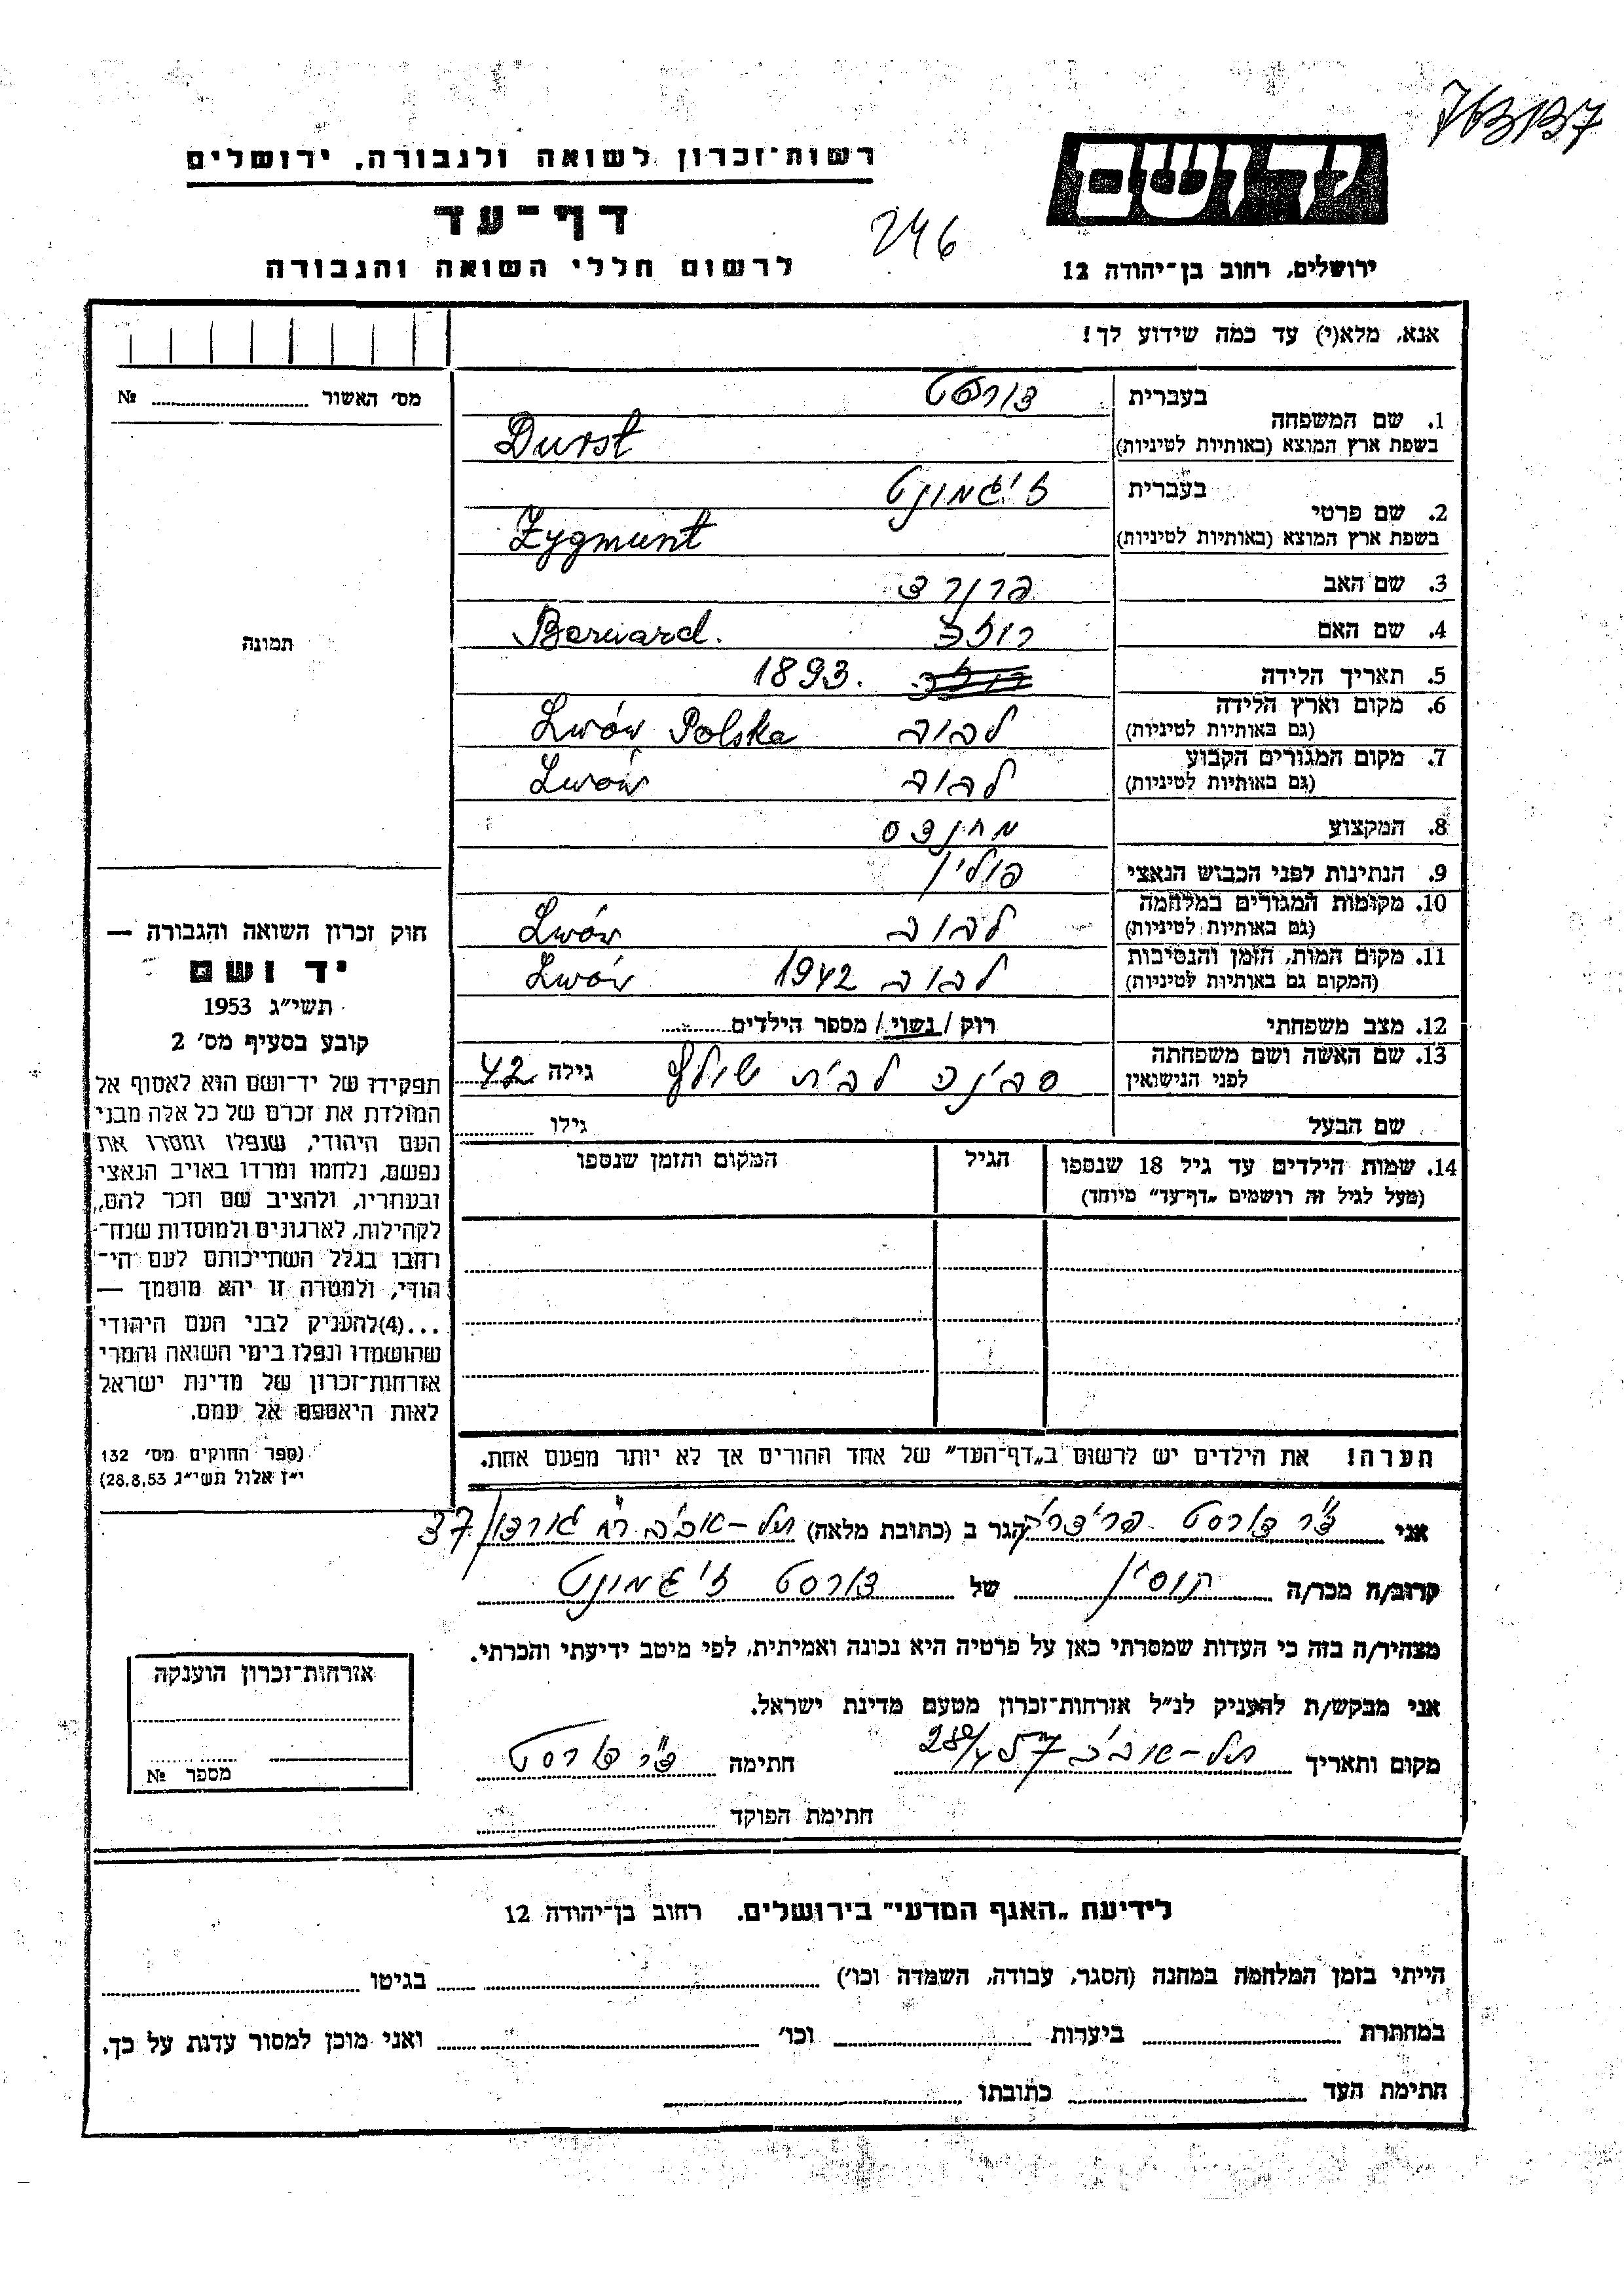 763137
יד ושם
רשות־זכרון לשואה ולגבורה, ירושלים
דף־עד
246
ירושלים, רחוב בן־יהודה 12
לרשום חללי השואה והגבורה
אנא, מלא(י) עד כמה שידוע לך!
מס׳ האשור № 
1. שם המשפחה בעברית דורסט
בשפת ארץ המוצא (באותיות לטיניות) Durst
2. שם פרטי בעברית זיגמונט
בשפת ארץ המוצא (באותיות לטיניות) Zygmunt
3. שם האב ברנרד
4. שם האם רוזה Bernard.
5. תאריך הלידה 1893.
6. מקום וארץ הלידה לבוב Lwów Polska
(גם באותיות לטיניות)
7. מקום המגורים הקבוע לבוב Lwów
(גם באותיות לטיניות)
8. המקצוע מהנדס
9. הנתינות לפני הכבוש הנאצי פולין
10. מקומות המגורים במלחמה לבוב Lwów
(גם באותיות לטיניות)
11. מקום המות, הזמן והנסיבות לבוב 1942 Lwów
(המקום גם באותיות לטיניות)
12. מצב משפחתי רוק / נשוי / מספר הילדים
13. שם האשה ושם משפחתה לבית גילה 42
לפני הנישואין
שם הבעל גילו
14. שמות הילדים עד גיל 18 שנספו הגיל המקום והזמן שנספו
(מעל לגיל זה רושמים „דף־עד״ מיוחד)
הערה! את הילדים יש לרשום ב„דף־העד״ של אחד ההורים אך לא יותר מפעם אחת.
תמונה
חוק זכרון השואה והגבורה —
יד ושם
תשי״ג 1953
קובע בסעיף מס׳ 2
תפקידו של יד־ושם הוא לאסוף אל
המולדת את זכרם של כל אלה מבני
העם היהודי, שנפלו ומסרו את
נפשם, נלחמו ומרדו באויב הנאצי
ובעוזריו, ולהציב שם וזכר להם,
לקהילות, לארגונים ולמוסדות שנח־
רבו בגלל השתייכותם לעם הי־
הודי, ולמטרה זו יהא מוסמך —
...(4)להעניק לבני העם היהודי
שהושמדו ונפלו בימי השואה והמרי
אזרחות־זכרון של מדינת ישראל
לאות היאספם אל עמם.
(ספר החוקים מס׳ 132
י״ז אלול תשי״ג 28.8.53)
אני ד״ר דורסט פרידריך הגר ב (כתובת מלאה) תל-אביב רח׳ גורדון 37
קרוב/ה מכר/ה של דורסט זיגמונט
מצהיר/ה בזה כי העדות שמסרתי כאן על פרטיה היא נכונה ואמיתית, לפי מיטב ידיעתי והכרתי.
אני מבקש/ת להעניק לנ״ל אזרחות־זכרון מטעם מדינת ישראל.
מקום ותאריך תל-אביב חתימה ד״ר דורסט
חתימת הפוקד
אזרחות־זכרון הוענקה
מספר №
לידיעת „האגף המדעי״ בירושלים. רחוב בן־יהודה 12
הייתי בזמן המלחמה במחנה (הסגר, עבודה, השמדה וכו׳) בגיטו
במחתרת ביערות וכו׳ ואני מוכן למסור עדות על כך.
חתימת העד כתובתו